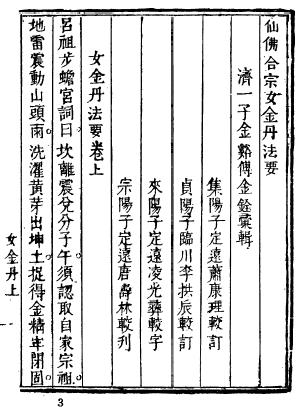 仙佛合宗女金丹法要
濟一子金谿傅金銓彙輯
集陽子定遠蕭康理較訂
貞陽子臨川李拱辰較訂
來陽子定遠凌光彝較字
宗陽子定遠唐壽林較刊
女金丹法要卷上
呂祖步蟾宮詞曰。坎離震兌分子午。須認取自家宗祖。
地雷震動山頭雨。洗濯黃芽出坤土。捉得金精牢閉固。
女金丹上
3